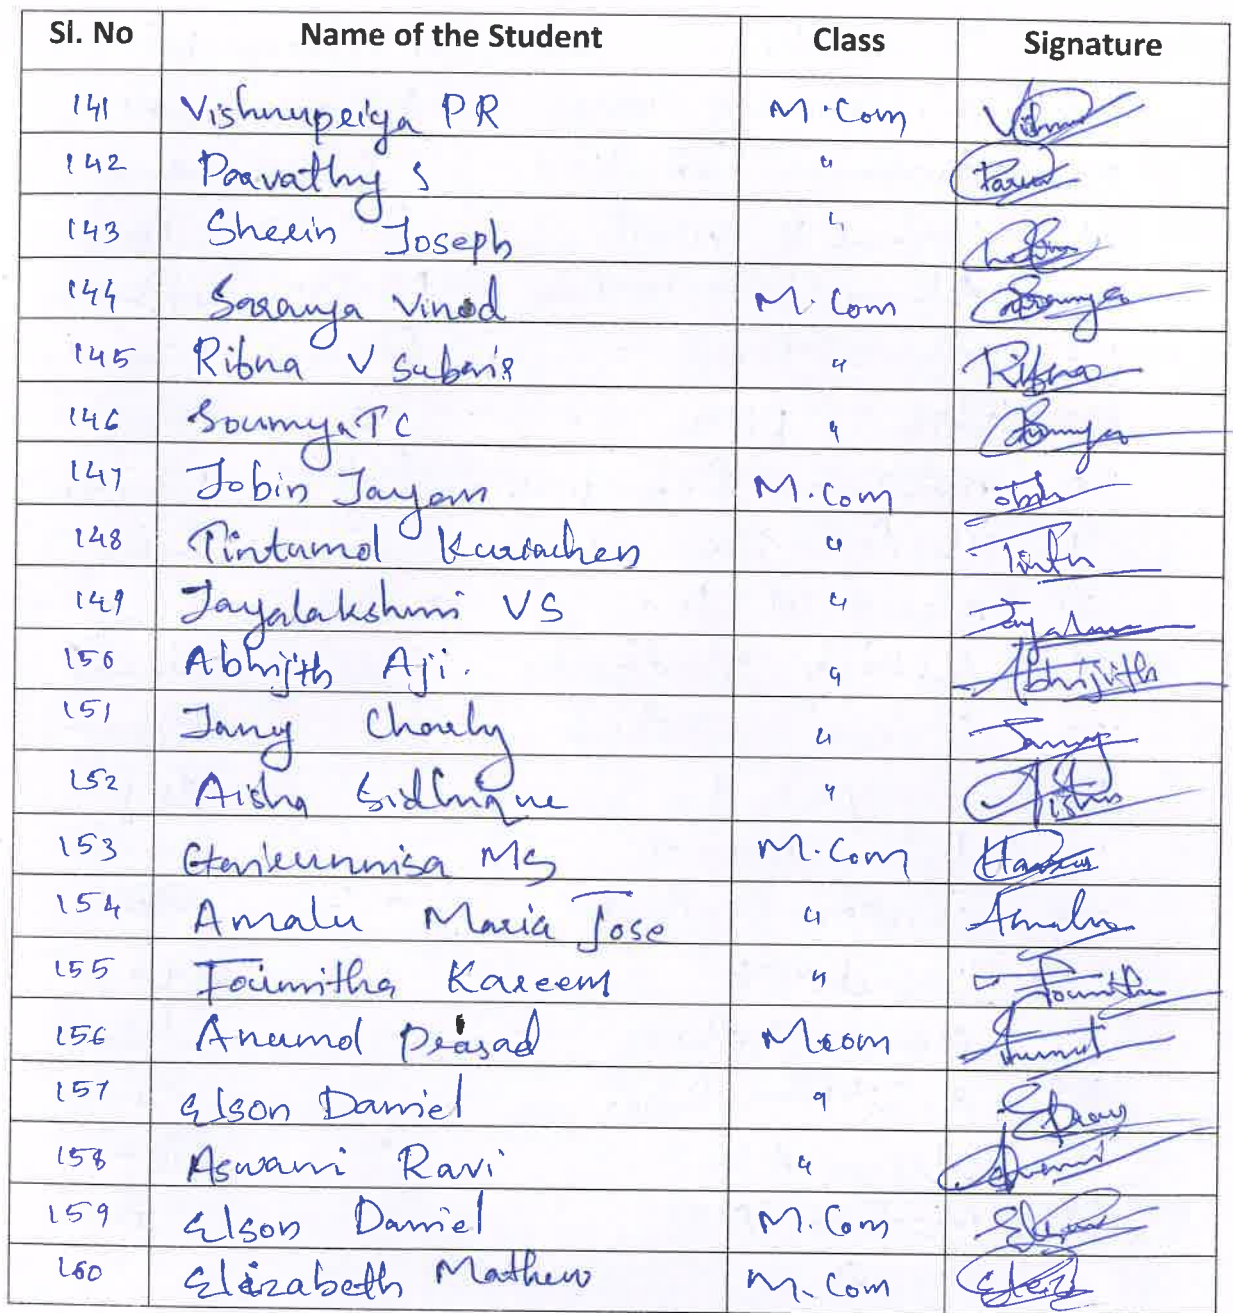 Sl. No Name of the Student Class Signature
141 Vishnupriya P R M.Com Vishnu
142 Parvathy S " Parvat
143 Sherin Joseph "
144 Saranya Vinod M.Com Saranya
145 Ribna V Subair " Ribna
146 Soumya T C " Soumya
147 Jobin Jayan M.Com
148 Tintumol Kuriachen " Tintu
149 Jayalakshmi VS "
150 Abhijith Aji. " Abhijith
151 Jany Charly " Jany
152 Aisha Sidhique " Aisha
153 M S M.Com
154 Amalu Maria Jose " Amalu
155 Kareem "
156 Anumol Prasad Mcom Anumol
157 Elson Daniel "
158 Aswani Ravi " Aswani
159 Elson Daniel M.Com
160 Elizabeth Mathew M.Com